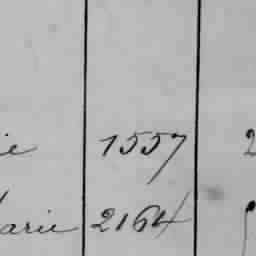 ie 1557 2
arie 2164